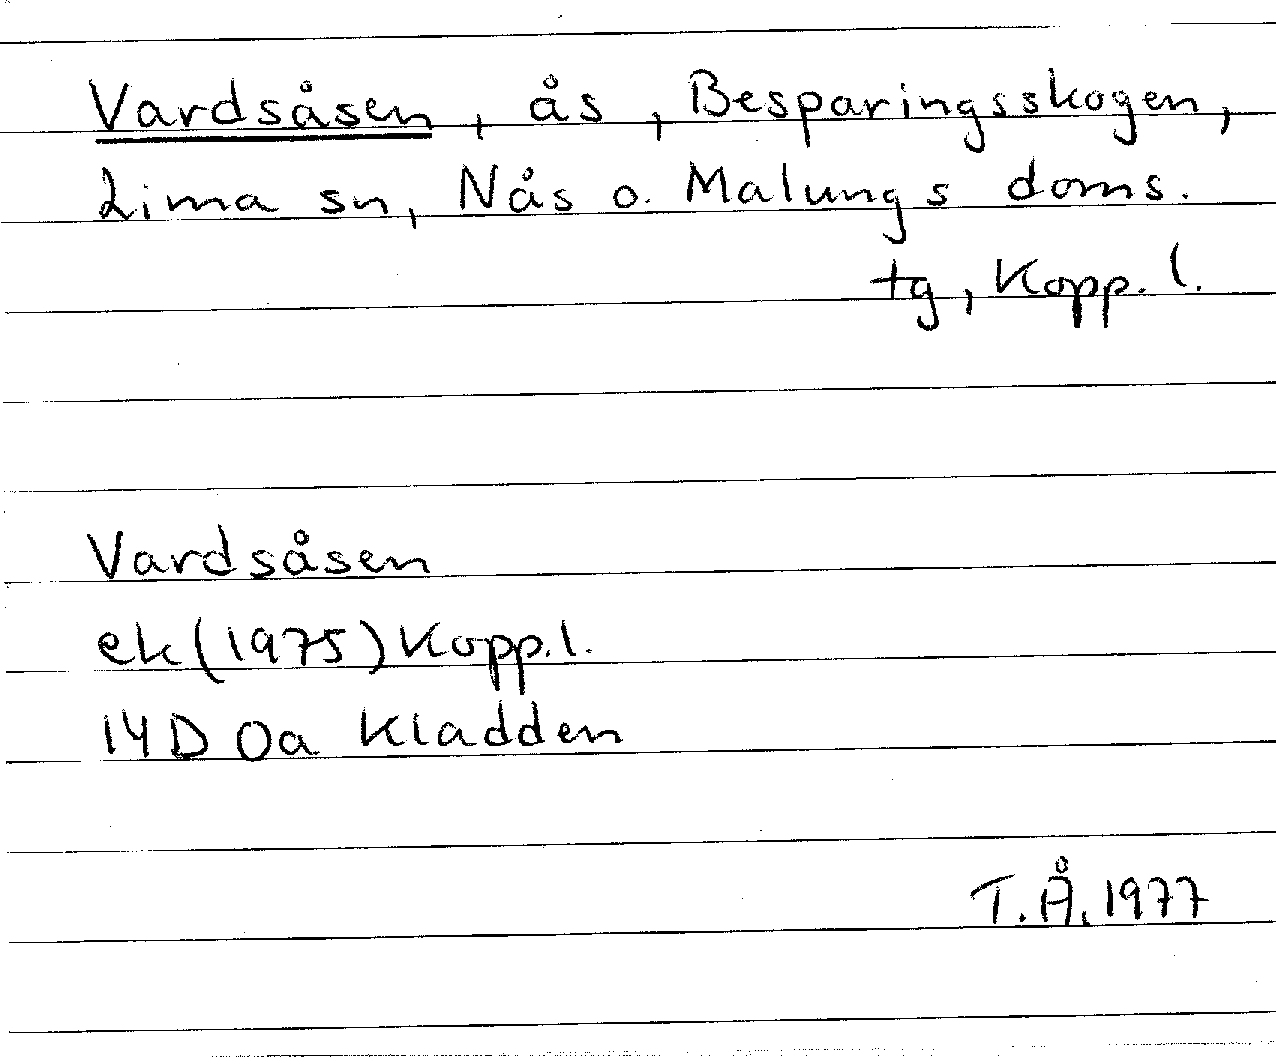 Vardsåsen, ås, Besparingsskogen,
Lima sn, Nås o. Malungs doms.
tg, Kopp. l.
Vardsåsen
ek (1975) Kopp. l.
14D 0a Kladden
T.Å. 1977